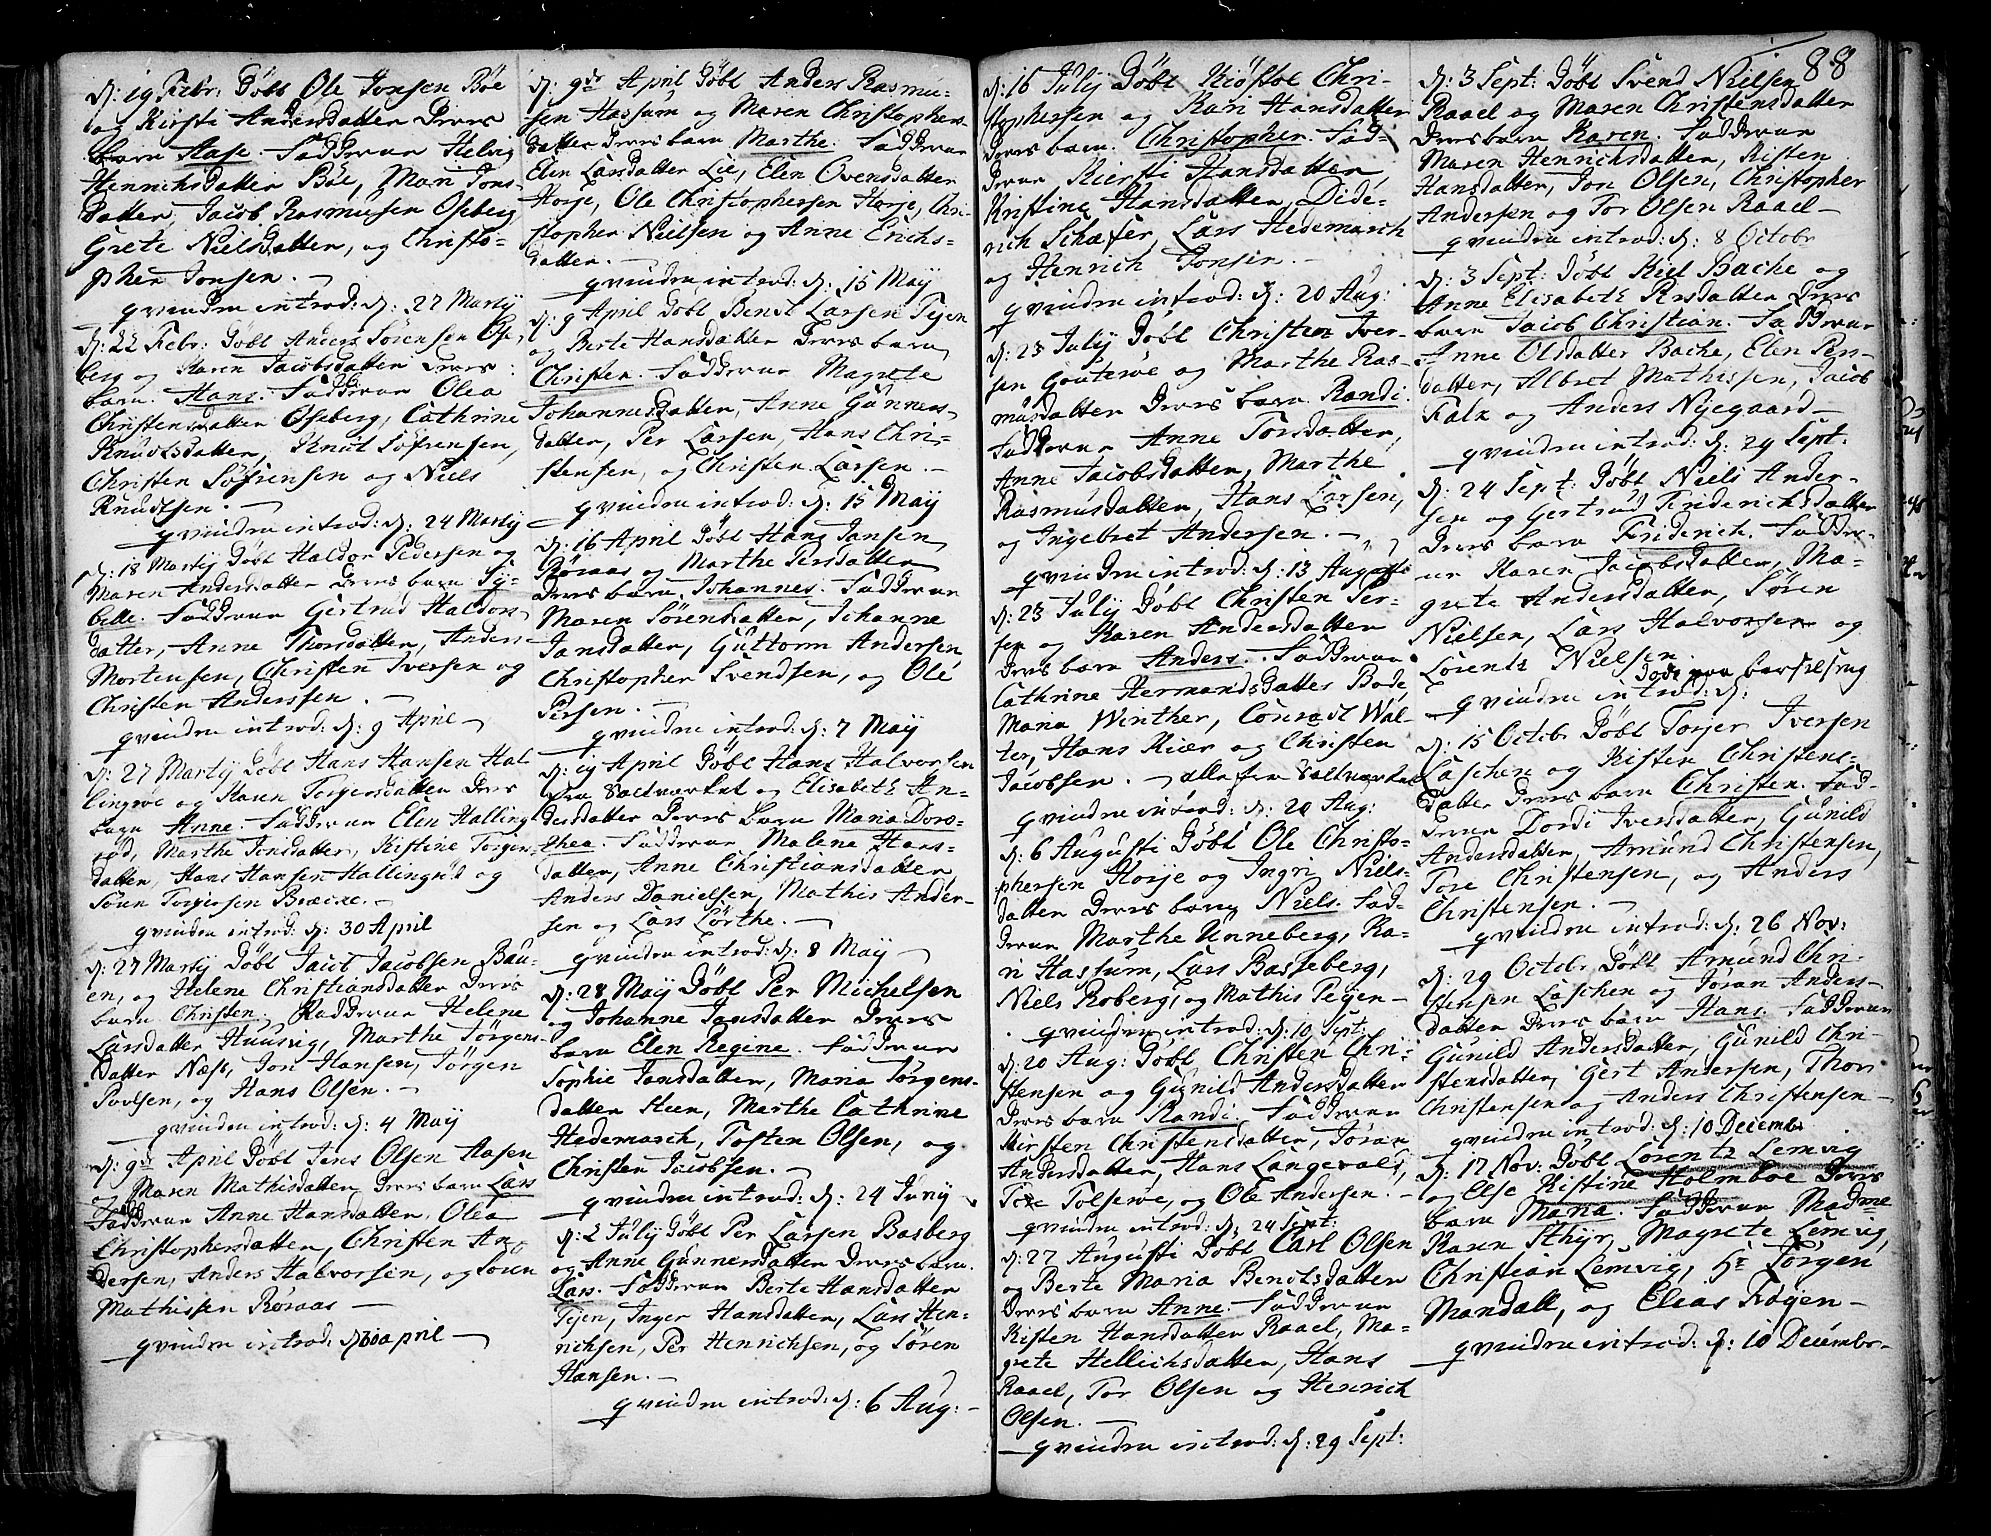 d: 19 Febr: Døbt Ole Jonsen Bøe
og Kirsti Andersdatter Deres
barn Aase. Fadderne Helvig
Henrichsdatter Bøe, Mari Jons-
datter, Jacob Rasmusen Oseberg
Grete Nielsdatter, og Christo-
pher Jonsen. —
qvinden introd: d: 27 Martij
d: 22 Febr: Døbt Anders Sørensen Ose-
berg og Karen Jacobsdatter Deres
barn Hans. Fadderne Olea
Christensdatter Oseberg, Cathrine
Knudsdatter, Knut Søfrensen,
Christen Søfrensen og Niels
Knudtsen. —
qvinden introd: d: 24 Martij
d: 18 Martij Døbt Haldor Pedersen og
Maren Andersdatter Deres barn Sy-
bille. Fadderne Gertrud Haldors-
datter, Anne Thorsdatter, Anders
Mortensen, Christen Iversen og
Christen Anderssen. —
qvinden introd: d: 9 April —
d: 27 Martij Døbt Hans Hansen Hal-
lingrøe og Karen Torgersdatter Deres
barn Anne. Fadderne Elen Halling-
rød, Marthe Jonsdatter, Kistine Torgers-
datter, Hans Hansen Hallingrød og
Søren Torgersen Brecke. —
qvinden introd: d: 30 April
d: 27 Martij Døbt Jacob Jacobsen Bau-
en, og Helene Christiansdatter Deres
barn Christen. Fadderne Helene
Larsdatter Huusvig, Marthe Jørgens-
datter Næss, Jon Hansen, Jørgen
Povelsen, og Hans Olsen. —
qvinden introd: d: 4 Maij
d: 9de April Døbt Jens Olsen Aasen
og Maren Mathisdatter Deres barn Lars
Fadderne Anne Hansdatter, Olea
Christophersdatter, Christen An-
dersen, Anders Halvorsen, og Søren
Mathissen Røraas —
qvinden introd: d: 30 april —
d: 9de April Døbt Anders Rasmu-
sen Hassum og Maren Christophers-
datter Deres barn Marthe. Fadderne
Elen Larsdatter Lie, Elen Ovensdatter
Horje, Ole Christophersen Horje, Chri-
stopher Nielsen og Anne Erichs-
datter. —
qvinden introd: d: 15 Maij
d: 9 April Døbt Bendt Larsen Tejen
og Berte Hansdatter Deres barn
Christen. Fadderne Magrete
Johannesdatter, Anne Gunners-
datter, Per Larsen, Hans Chri-
stensen, og Christen Larsen. —
qvinden introd: d: 15 Maij
d: 16 April Døbt Hans Jansen
Røraas og Marthe Persdatter
Deres barn Johannes. Fadderne
Maren Sørensdatter, Johanne
Jansdatter, Guttorm Andersen
Christopher Svendsen, og Ole
Persen. —
qvinden introd: d: 7 Maij
d: 19 April Døbt Hans Halvorsen
ved Saltværket og Elisabeth An-
dersdatter Deres barn Maria Doro-
thea. Fadderne Malene Hans-
datter, Anne Christiansdatter
Anders Danielsen, Mathis Ander-
sen og Lars Lorthe. —
qvinden introd: d: 8 Maij —
d: 28 Maij Døbt Per Michelsen
og Johanne Jansdatter Deres
barn Elen Regine. Fadderne
Sophie Jansdatter, Maria Jørgens-
datter Steen, Marthe Cathrine
Hedemarch, Tosten Olsen, og
Christen Jacobsen. —
qvinden introd: d: 24 Junij
d: 2 Julij Døbt Per Larsen Basberg
og Anne Gunnersdatter Deres barn
Lars. Fadderne Berte Hansdatter
Tejen, Inger Hansdatter, Lars Hen-
richsen, Per Henrichsen, og Søren
Hansen. —
qvinden introd: d: 6 Aug: —
88
d: 16 Julij Døbt Kiøstol Chri-
stophersen og Kari Hansdatter
Deres barn Christopher. Fad-
derne Kiersti Hansdatter,
Kristine Hansdatter, Dide-
rich Schæfer, Lars Hedemarch
og Henrich Jonsen. —
qvinden introd: d: 20 Aug:
d: 23 Julij Døbt Christen Iver-
sen Gouterøe og Marthe Ras-
musdatter Deres barn Randi.
Fadderne Anne Torsdatter,
Anne Jacobsdatter, Marthe
Rasmusdatter, Hans Larsen,
og Ingebret Andersen. —
qvinden introd: d: 13 Augusti
d: 23 Julij Døbt Christen Per-
sen og Karen Andersdatter
Deres barn Anders. Fadderne
Cathrine Hermandsdatter Bode,
Mana Winther, Conradt Wal-
ter, Hans Kiær og Christen
Jacobsen. — alle fem Saltværket
qvinden introd: d: 20 Aug:
d: 6 Augusti Døbt Ole Christo-
phersen Horje og Ingri Niels-
datter Deres barn Niels. Fad-
derne Marthe Unneberg, Ka-
ri Hassum, Lars Basseberg,
Niels Roberg, og Mathis Tegen —
qvinden introd: d: 10 Sept:
d: 20 Aug: Døbt Christen Chri-
stensen og Gunild Andersdatter
Deres barn Randi. Fadderne
Kirsten Christensdatter, Jøran
Andersdatter, Hans Langevals,
Tore Tolserøe, og Ole Andersen. —
qvinden introd: d: 24 Sept:
d: 27 Augusti Døbt Carl Olsen
og Berte Maria Bendtsdatter
Deres barn Anne. Fadderne
Kisten Hansdatter Raael, Ma-
grete Hellichsdatter, Hans
Raael, Tor Olsen og Henrich
Olsen. —
qvinden introd: d: 29 Sept:
d: 3 Sept: Døbt Svend Nielsen
Raael og Maren Christensdatter
Deres barn Karen. Fadderne
Maren Henrichsdatter, Kisten
Hansdatter, Jon Olsen, Christopher
Andersen og Tor Olsen Raael —
qvinden introd: d: 8 Octobr
d: 3 Sept: Døbt Kiel Bache og
Anne Elisabeth Persdatter Deres
barn Jacob Christian. Fadderne
Anne Olsdatter Bache, Elen Pers-
datter, Albret Mathissen, Jacob
Falk og Anders Nyegaard —
qvinden introd: d: 29 Sept:
d: 24 Sept: Døbt Niels Ander-
sen og Gertrud Friderichsdatter
Deres barn Friderich. Fadder-
ne Karen Jacobsdatter, Ma-
grete Andersdatter, Søren
Nielsen, Lars Halvorsen og
Lorents Nielsen
døde paa barselseng
qvinden introd: d:
d: 15 Octobr Døbt Torjer Iversen
Laschen og Kisten Christens-
datter Deres barn Christen. Fad-
derne Dordi Iversdatter, Gunild
Andersdatter, Amund Christensen,
Tore Christensen, og Anders
Christensen. —
qvinden introd: d: 26 Nov:
d: 29 Octobr Døbt Amund Chri-
stensen Laschen og Jøran Anders-
datter Deres barn Hans. Fadderne
Gunild Andersdatter, Gunild Chri-
stensdatter, Gert Andersen, Thor
Christensen og Anders Christensen —
qvinden introd: d: 10 Decembr
d: 17 Nov: Døbt Lorentz Lemvig
og Else Kistine Holmboe Deres
barn Maria. Fadderne Madme
Karen Sthyr, Magrete Lemvig,
Christian Lemvig, Hr Jørgen
Mandall, og Elias Trøjen —
qvinden introd: d: 10 Decembr —